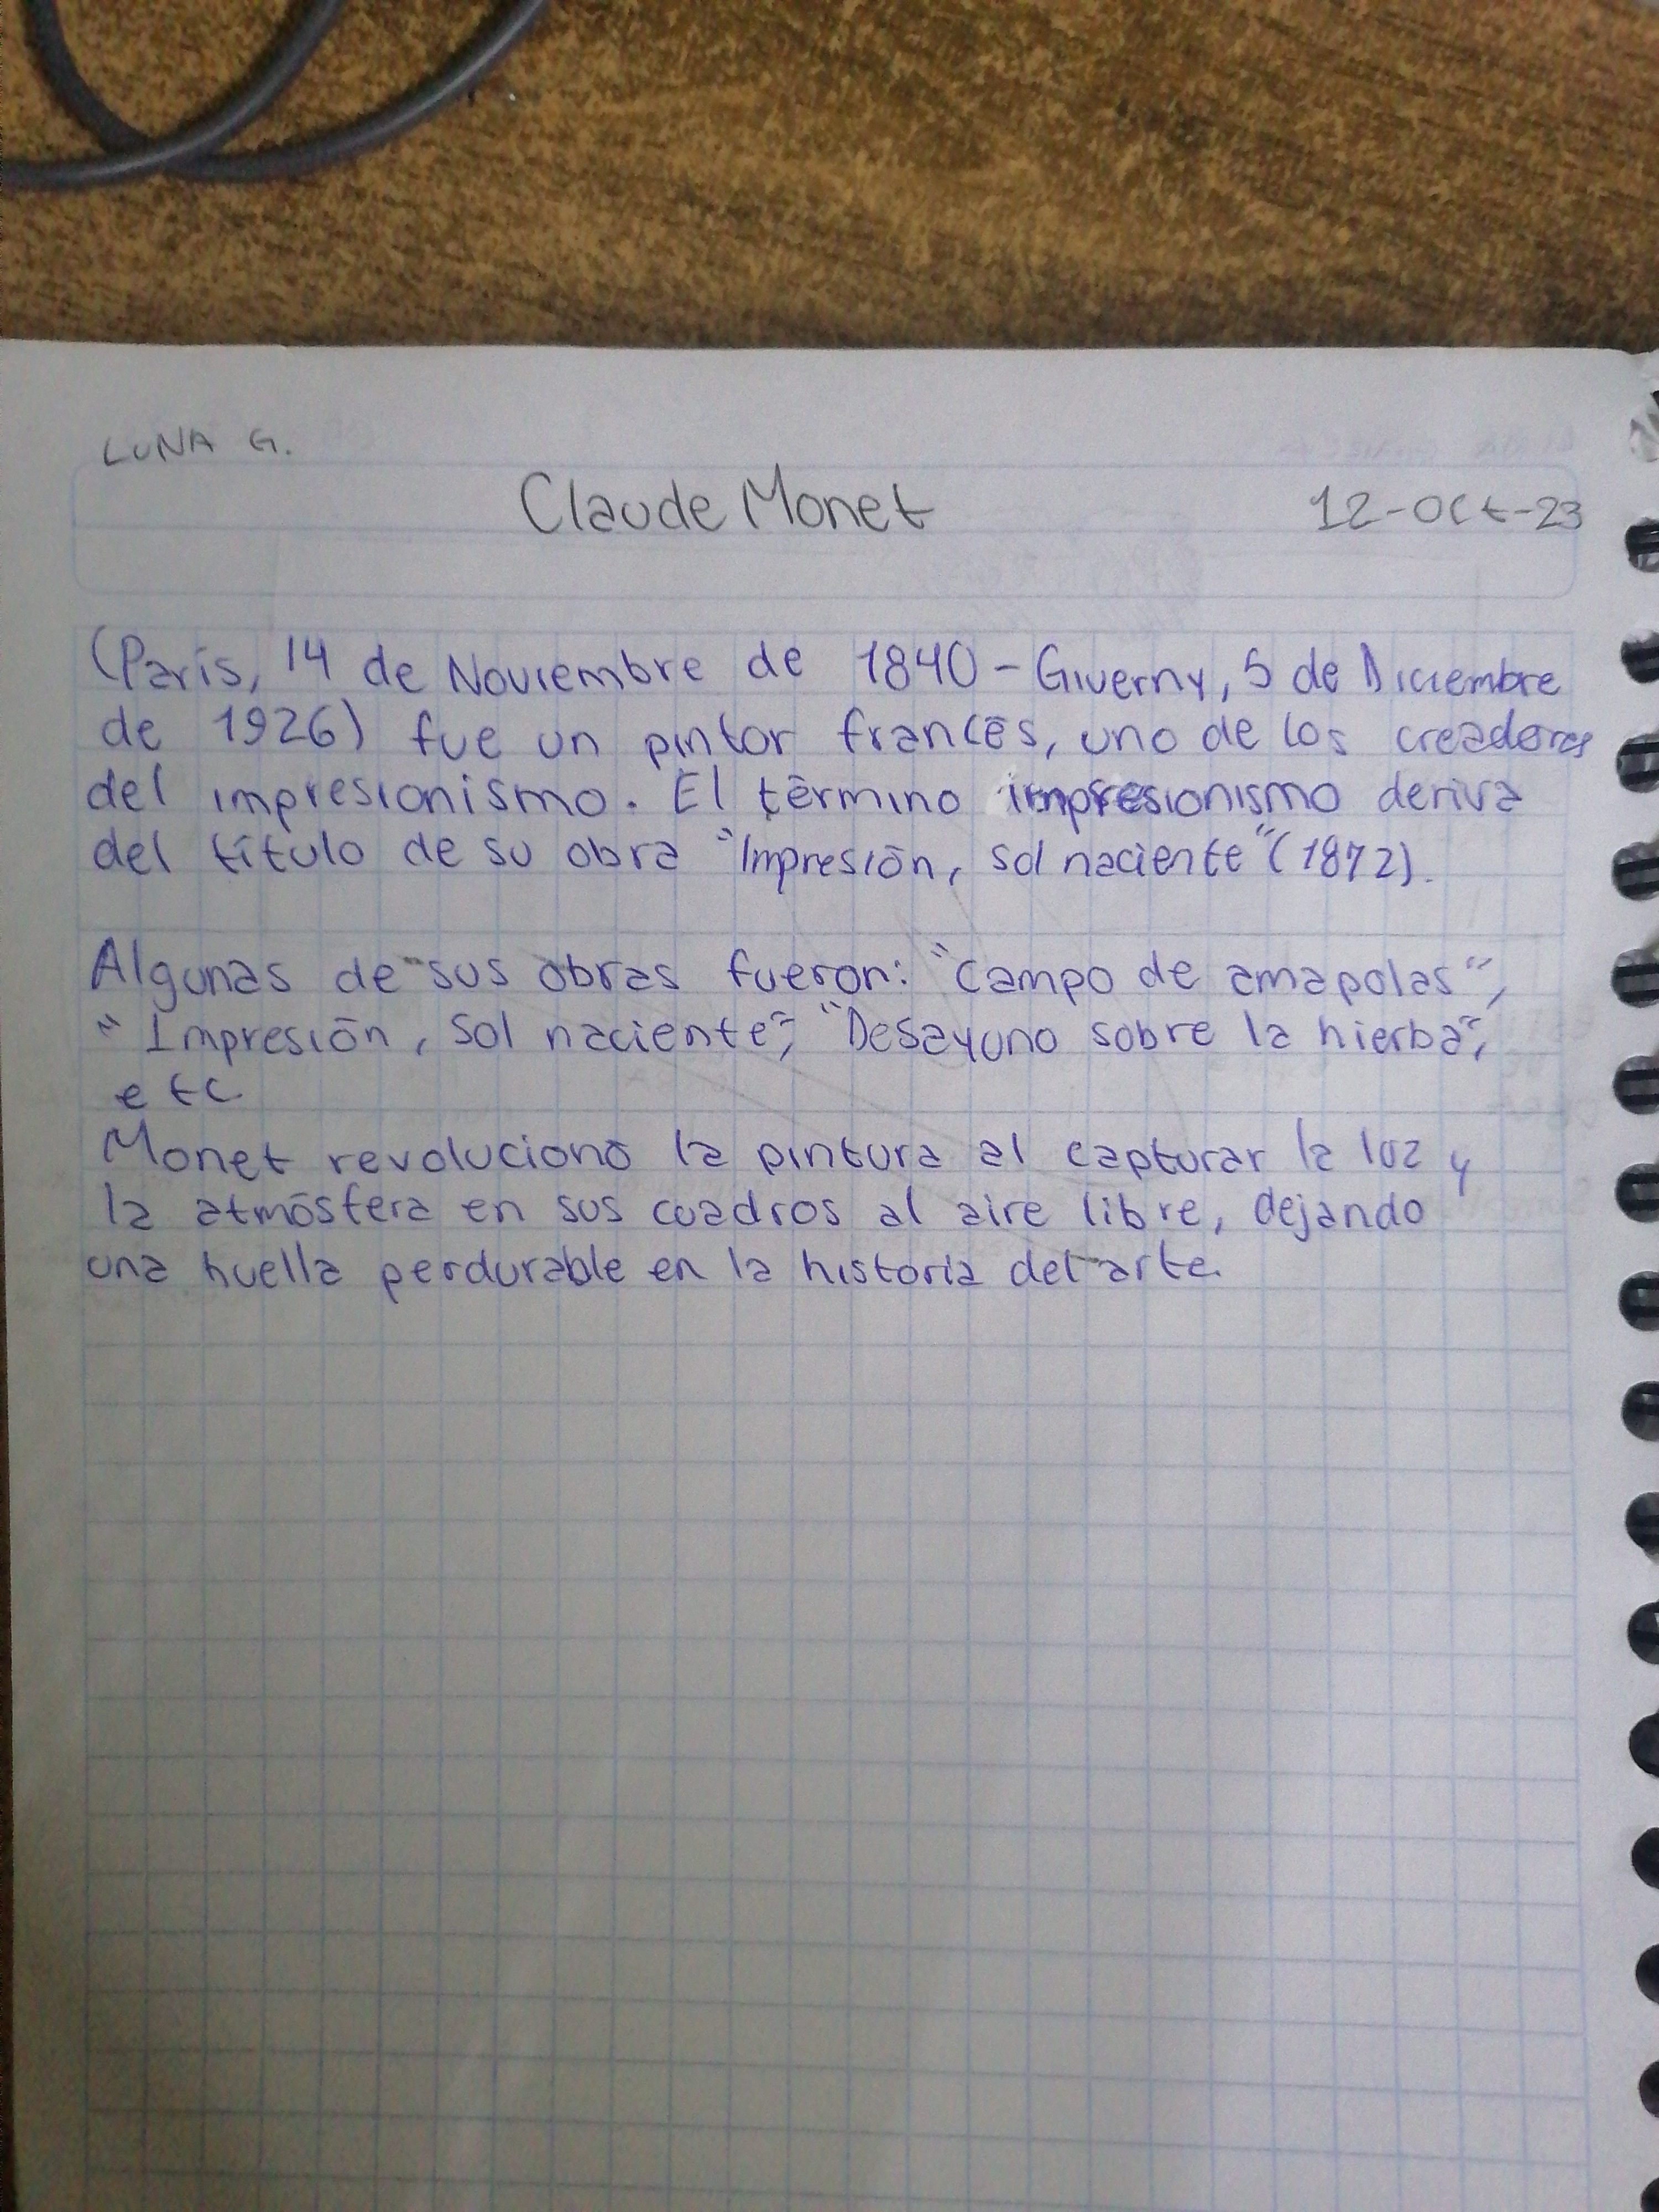 LUNA G.
Claude Monet 12-oct-23
(París, 14 de Noviembre de 1840 - Giverny, 5 de Diciembre
de 1926) fue un pintor francés, uno de los creadores
del impresionismo. El término impresionismo deriva
del título de su obra "Impresión, sol naciente" (1872).
Algunas de sus obras fueron: "Campo de amapolas",
"Impresión, Sol naciente", "Desayuno sobre la hierba",
etc
Monet revolucionó la pintura al capturar la luz y
la atmósfera en sus cuadros al aire libre, dejando
una huella perdurable en la historia del arte.